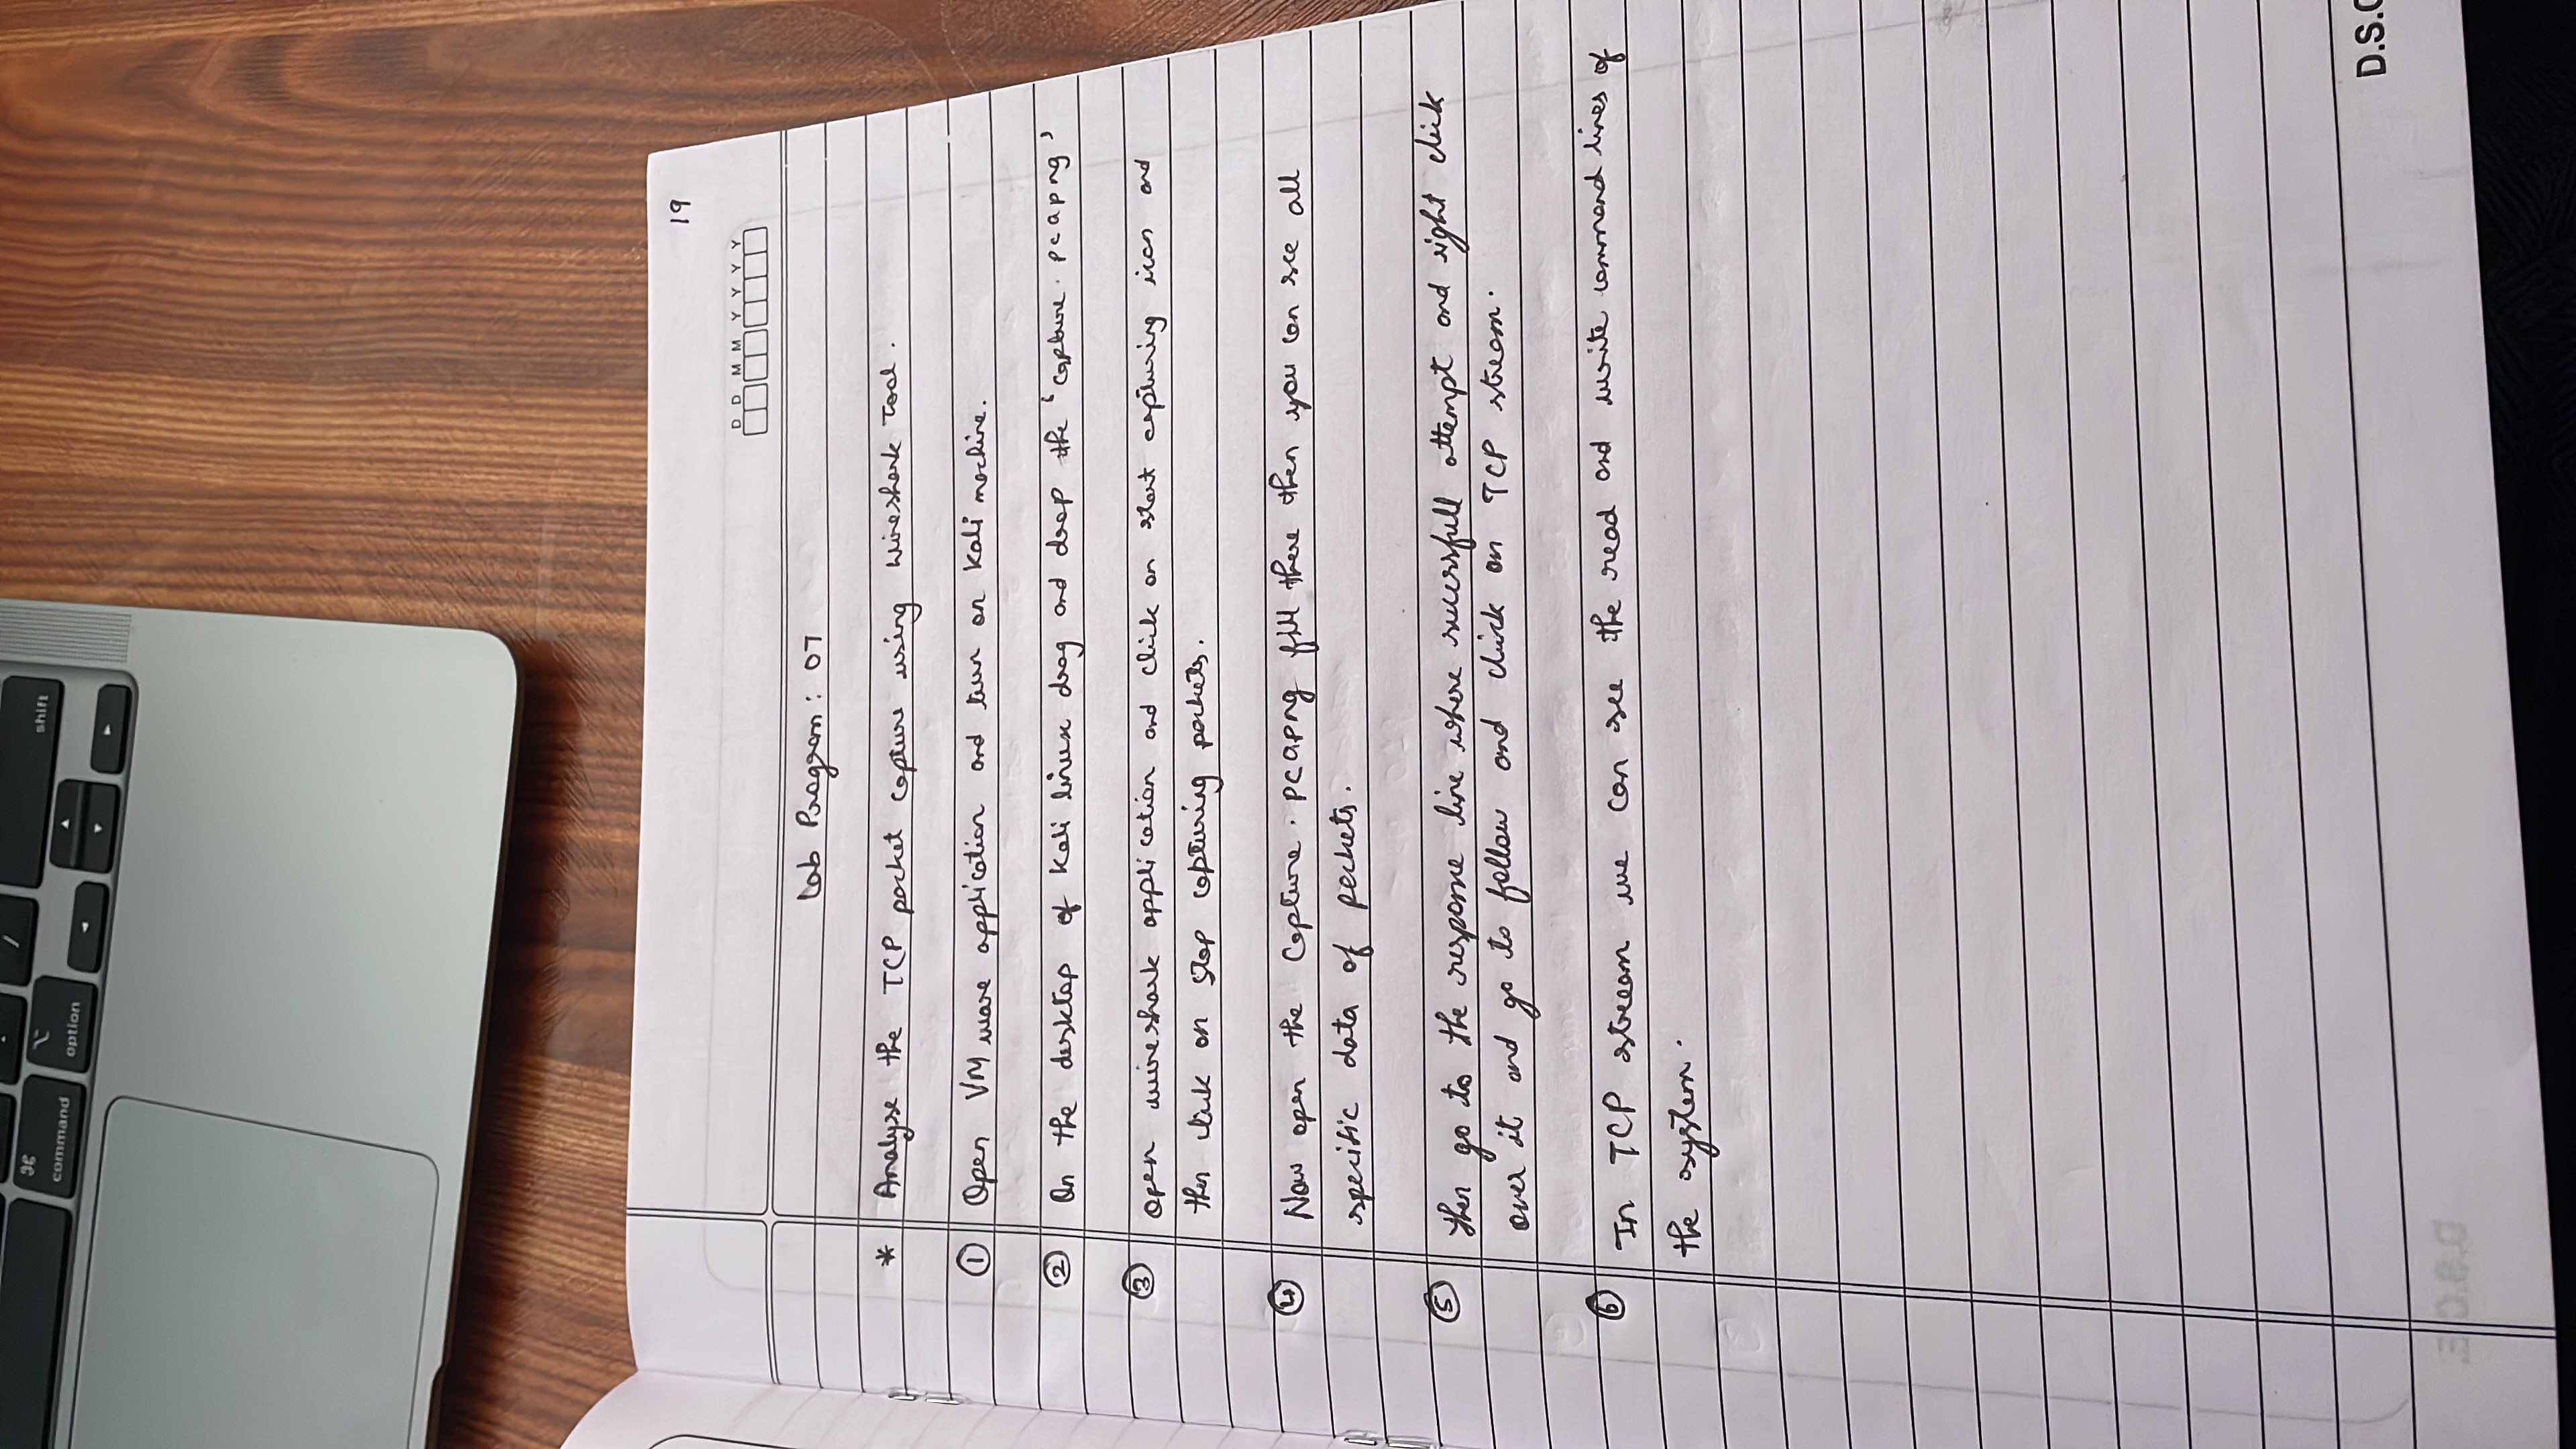 ⌘
command
⌥
option
/
shift
19
D D M M Y Y Y Y
Lab Program: 07
* Analyse the TCP packet capture using wireshark Tool.
① Open VM ware application and turn on Kali machine.
② On the desktop of Kali linux drag and drop the 'capture.pcapng'
③ open wireshark application and click on start capturing icon and
then click on stop capturing packets.
④ Now open the Capture.pcapng fill there then you can see all
specific data of packets.
⑤ then go to the response line where sucessfull attempt and right click
over it and go to follow and click on TCP stream.
⑥ In TCP stream we can see the read and write command lines of
the system.
D.S.C
D.S.C.E.